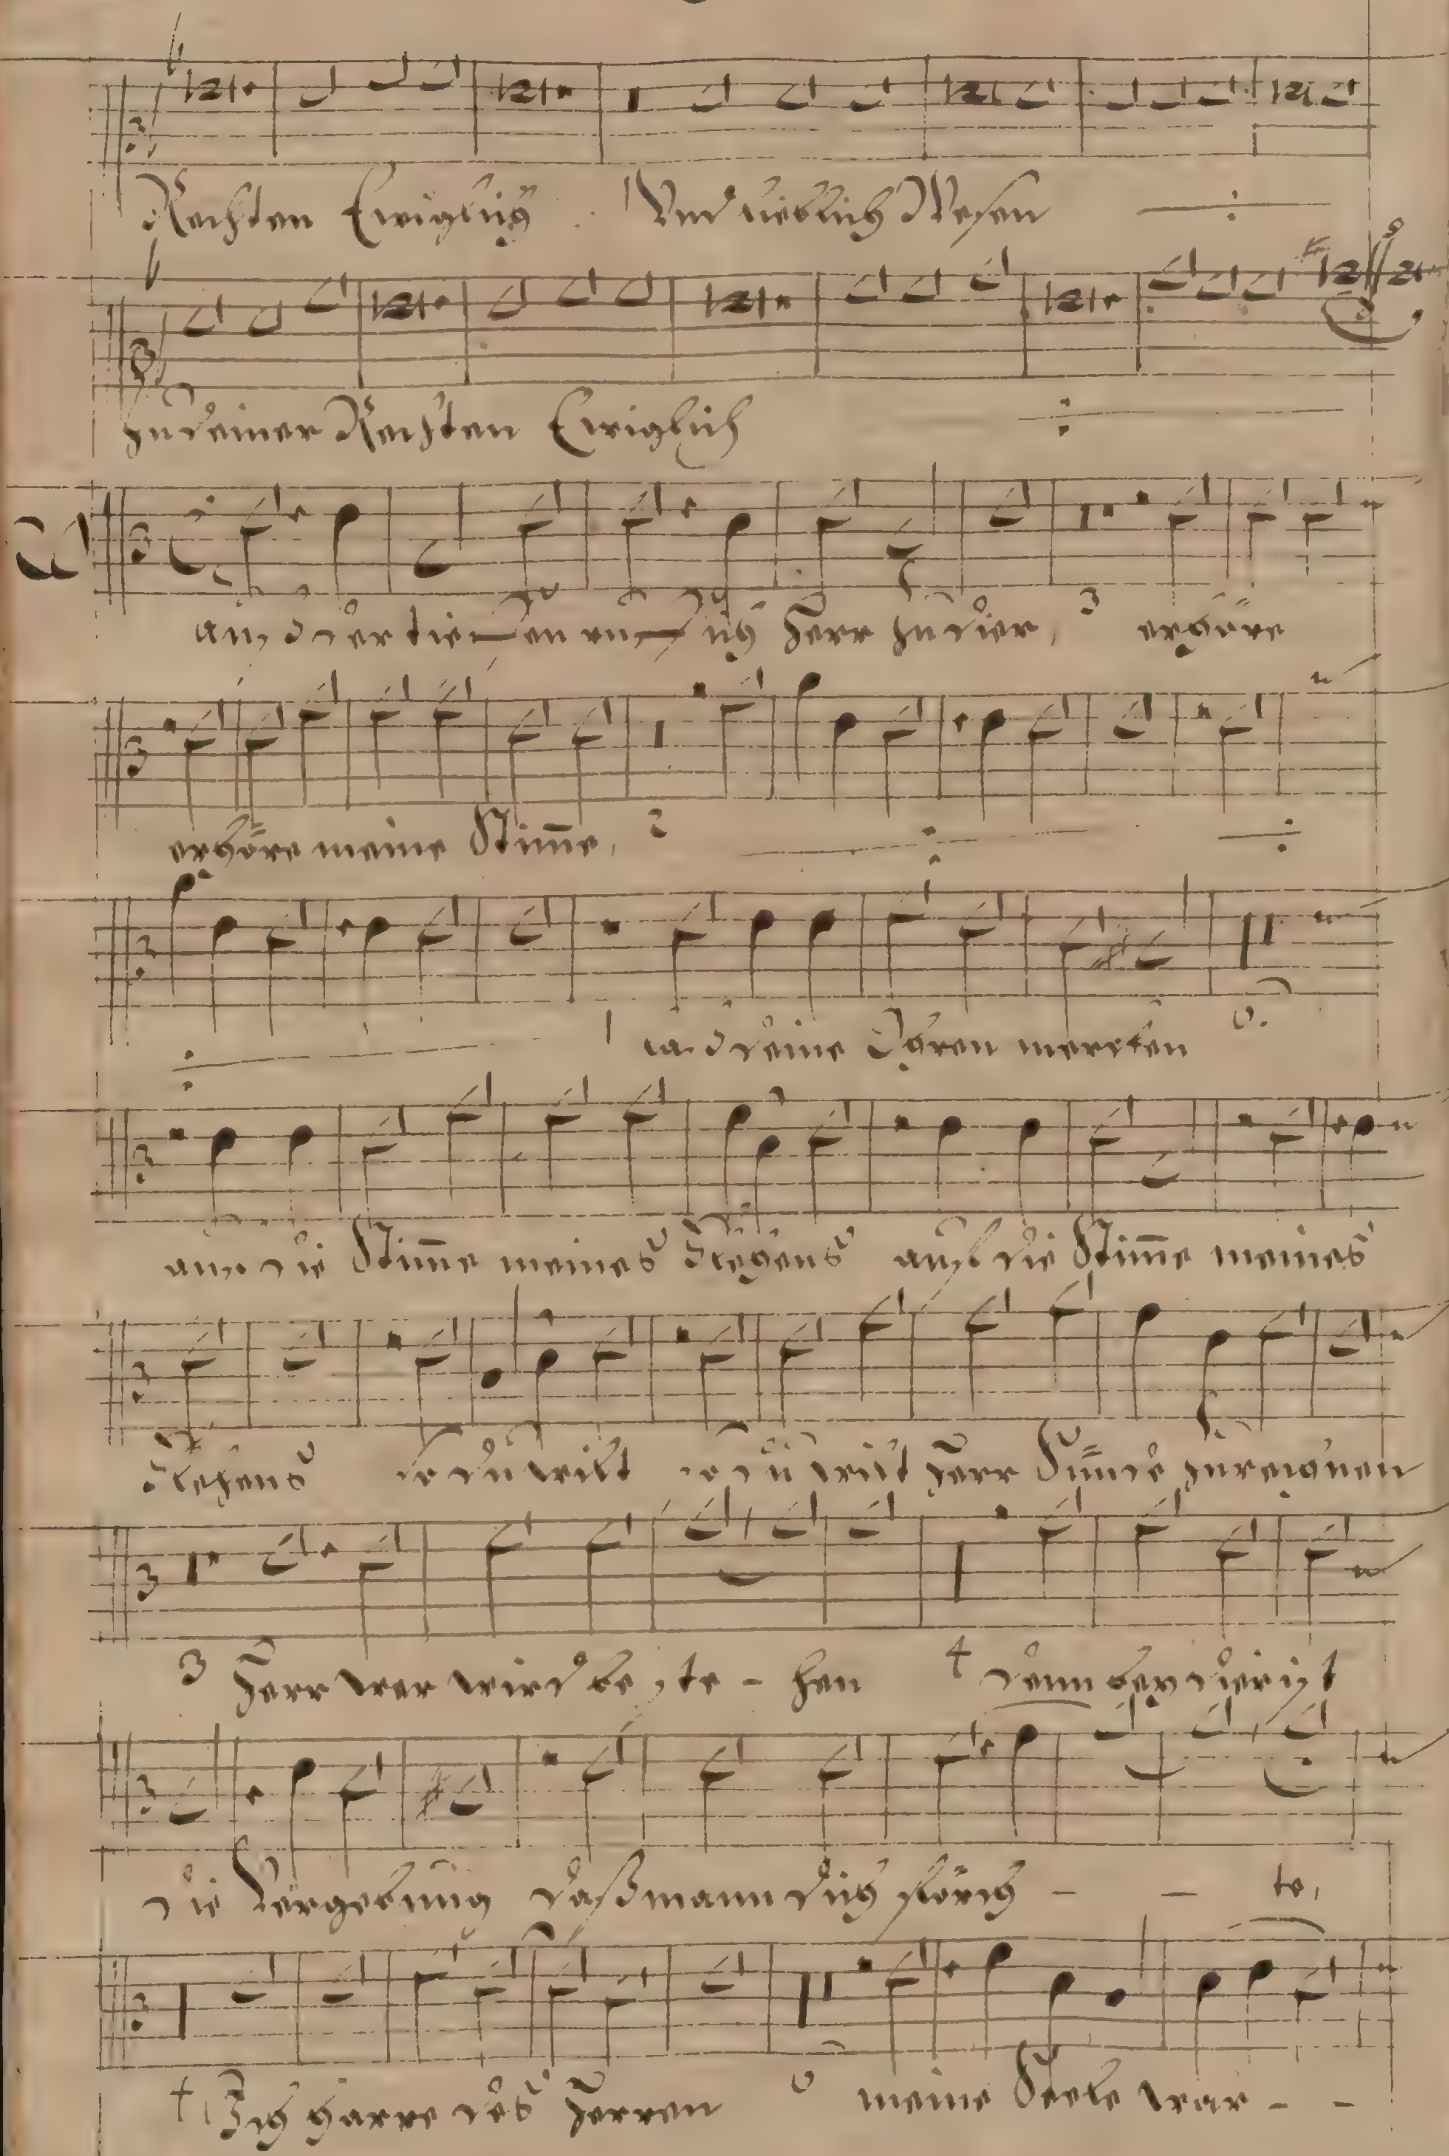 Rechten Ewiglich Und lieblich Wesen
zu deiner Rechten Ewiglich
auß der tieffen ruff ich Herr zu dier, 3 erhöre
erhöre meine Stim̄e, 2
laß deine Ohren mercken 6.
auff die Stim̄e meines Flehens auff die Stim̄e meines
Flehens so du wilt so du wilt Herr Sünde zu reignen
3 Herr wer wird beste - hen 4 denn bey dier ist
die Vergebung daß mann dich förch - - te,
4 Ich harre des Herren 6 meine Seele war - -